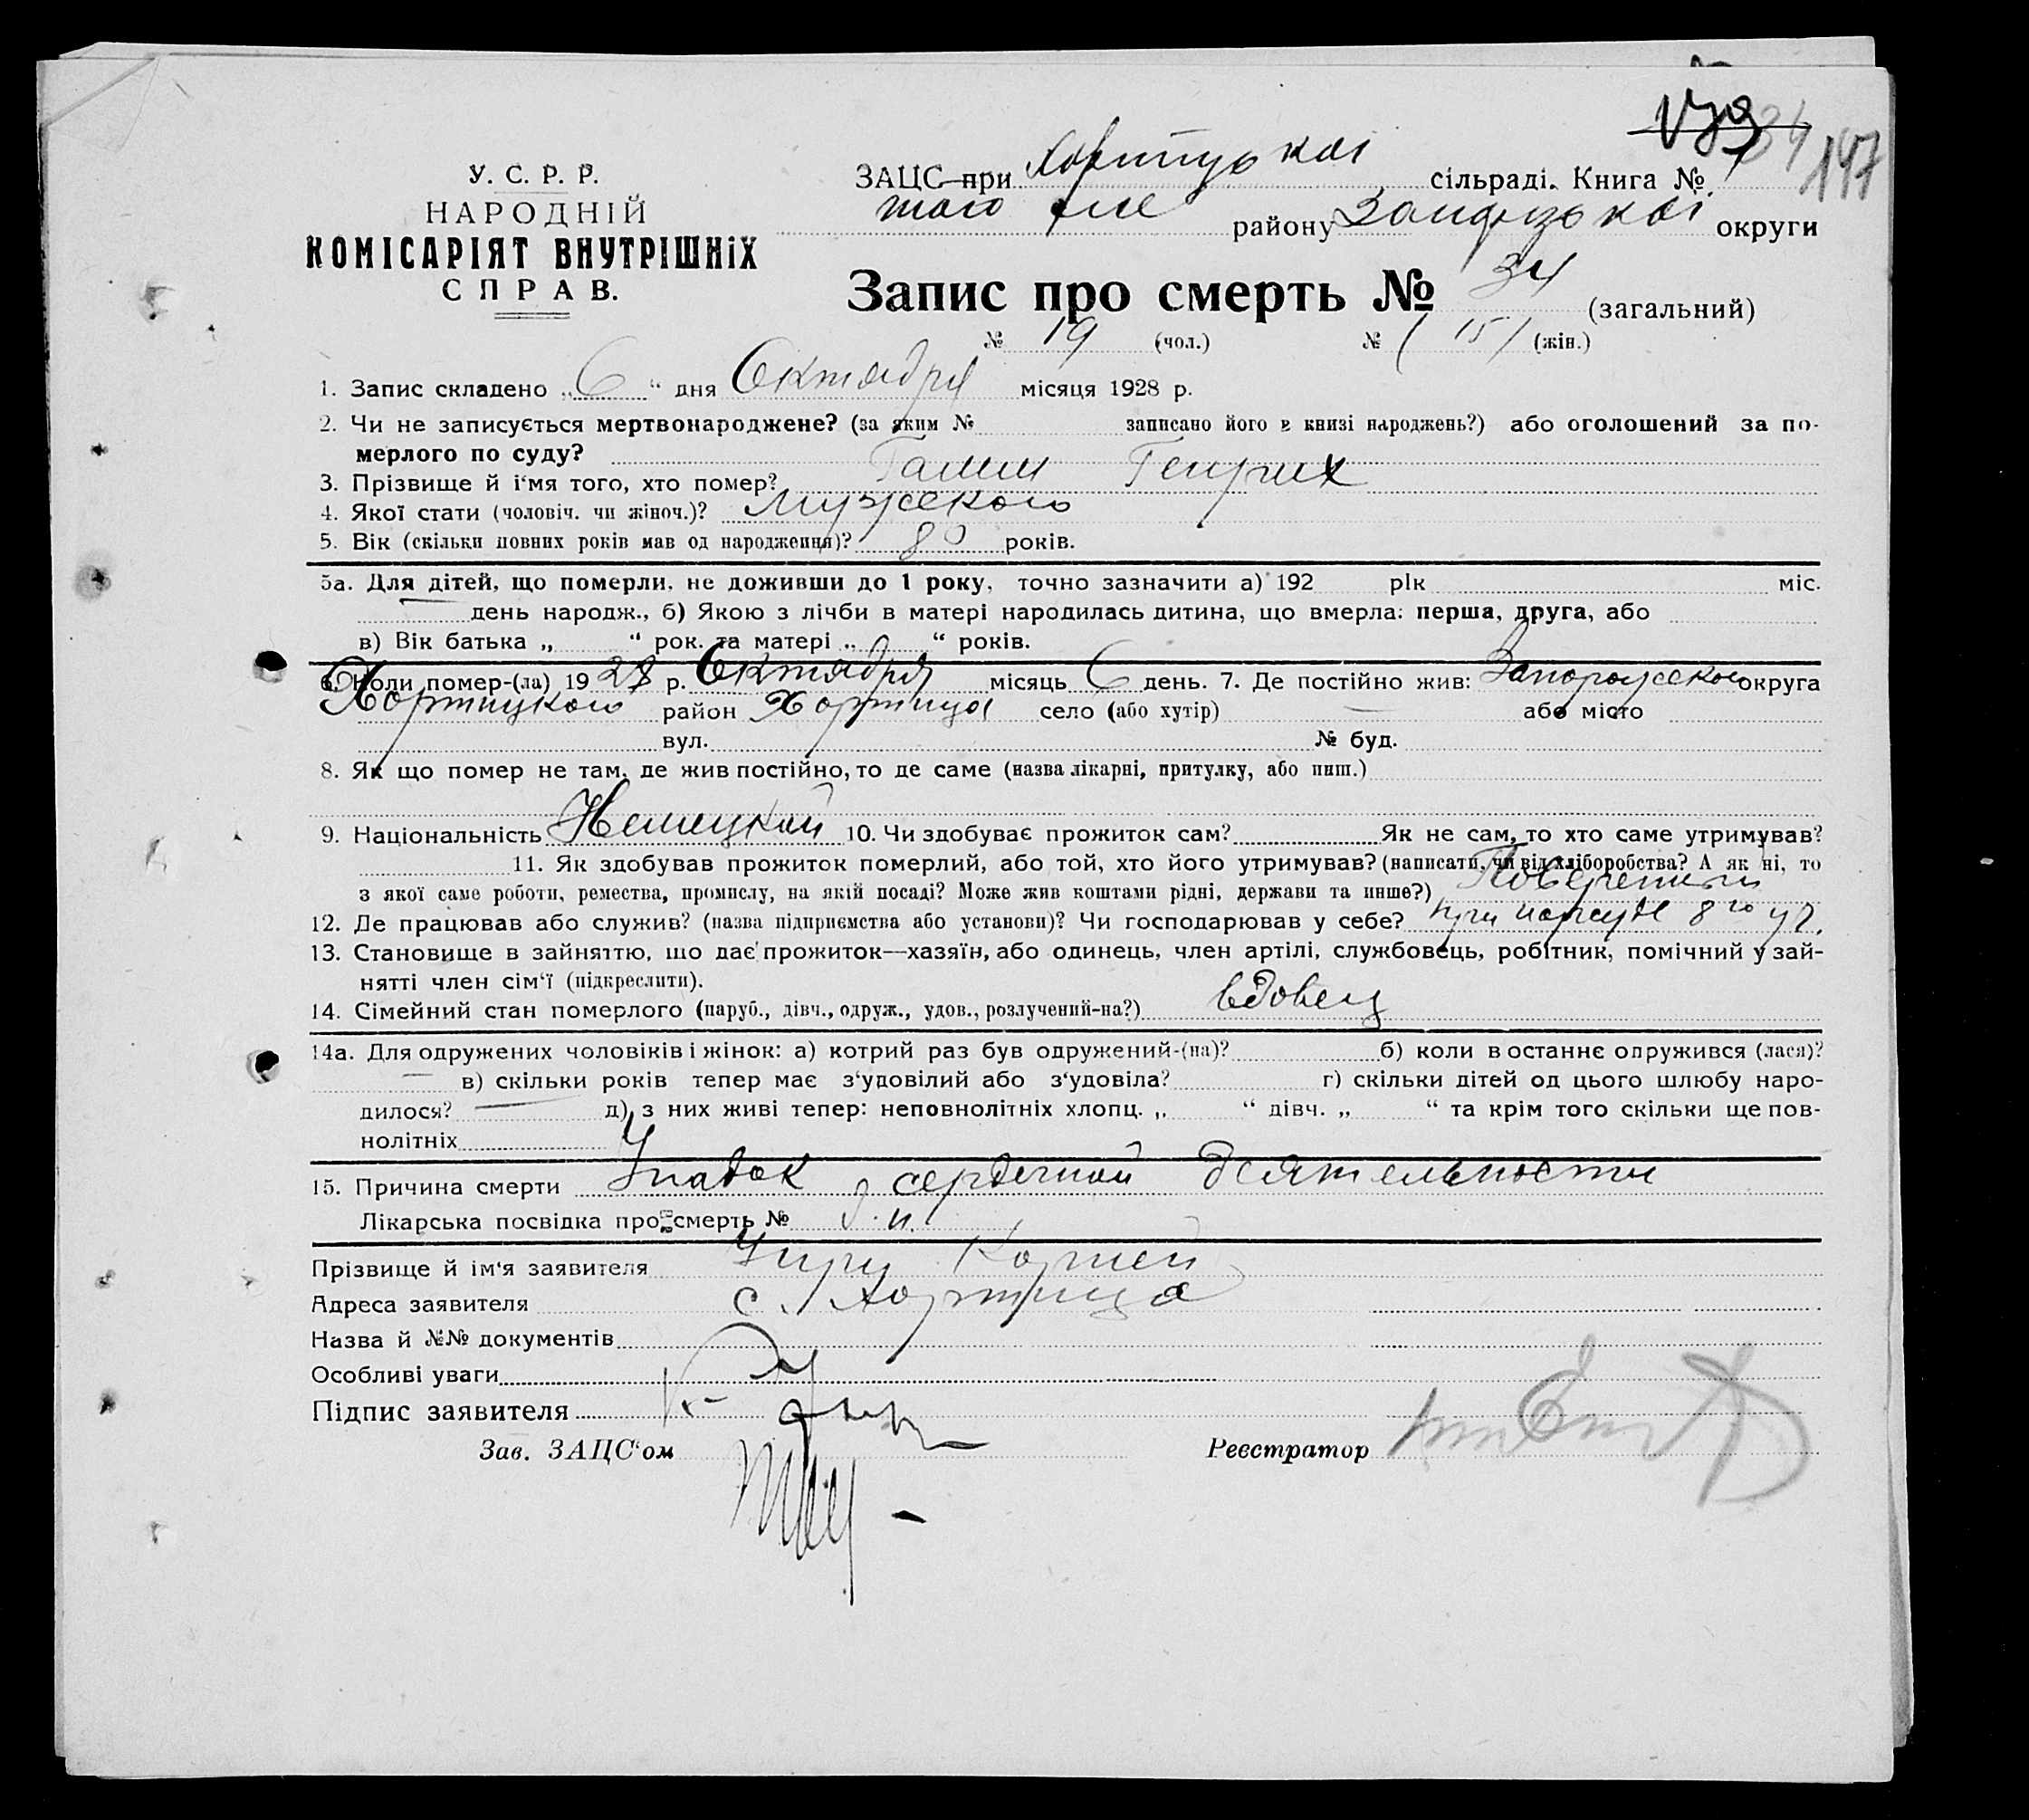 147
У. С. Р. Р.
НАРОДНІЙ
КОМІСАРІЯТ ВНУТРІШНІХ
СПРАВ.
ЗАЦС при Хортицькоі сільраді. Книга №
того же району Запорізькоі округи
Запис про смерть № 34 (загальний)
№ 19 (чол.) № (15) (жін.)
1. Запис складено „6“ дня Октября місяця 1928 р.
2. Чи не записується мертвонароджене? (за яким № записано його в книзі народжень?) або оголошений за по-
мерлого по суду?
3. Прізвище й і'мя того, хто помер? Генрих
4. Якої стати (чоловіч. чи жіноч.)? Мужского
5. Вік (скільки повних років мав од народження)? 80 років.
5а. Для дітей, що померли, не доживши до 1 року, точно зазначити а) 192 рік міс.
день народж., б) Якою з лічби в матері народилась дитина, що вмерла: перша, друга, або
в) Вік батька „ “ рок. та матері „ “ років.
6. Коли помер-(ла) 1928 р. Октября місяць 6 день. 7. Де постійно жив: Запорожской округа
Хортицкого район Хортица село (або хутір) — або місто
вул. № буд.
8. Як що помер не там, де жив постійно, то де саме (назва лікарні, притулку, або инш.)
9. Національність Немецкой 10. Чи здобуває прожиток сам? Як не сам, то хто саме утримував?
11. Як здобував прожиток померлий, або той, хто його утримував? (написати, чи від хліборобства? А як ні, то
з якої саме роботи, ремества, промислу, на якій посаді? Може жив коштами рідні, держави та инше?)
12. Де працював або служив? (назва підприємства або установи)? Чи господарював у себе? при нарсуде 8го
13. Становище в зайняттю, що дає прожиток—хазяїн, або одинець, член артілі, службовець, робітник, помічний у зай-
нятті член сім'ї (підкреслити).
14. Сімейний стан померлого (паруб., дівч., одруж., удов., розлучений-на?) вдовец
14а. Для одружених чоловіків і жінок: а) котрий раз був одружений-(на)? б) коли в останнє одружився (лася)?
— в) скільки років тепер має з'удовілий або з'удовіла? г) скільки дітей од цього шлюбу наро-
дилося? — д) з них живі тепер: неповнолітніх хлопц. „ “ дівч. „ “ та крім того скільки ще пов-
нолітніх
15. Причина смерти Упадок сердечной деятельности
Лікарська посвідка про смерть №
Прізвище й ім'я заявителя Корней
Адреса заявителя с. Хортица
Назва й №№ документів
Особливі уваги
Підпис заявителя
Зав. ЗАЦС'ом Реєстратор